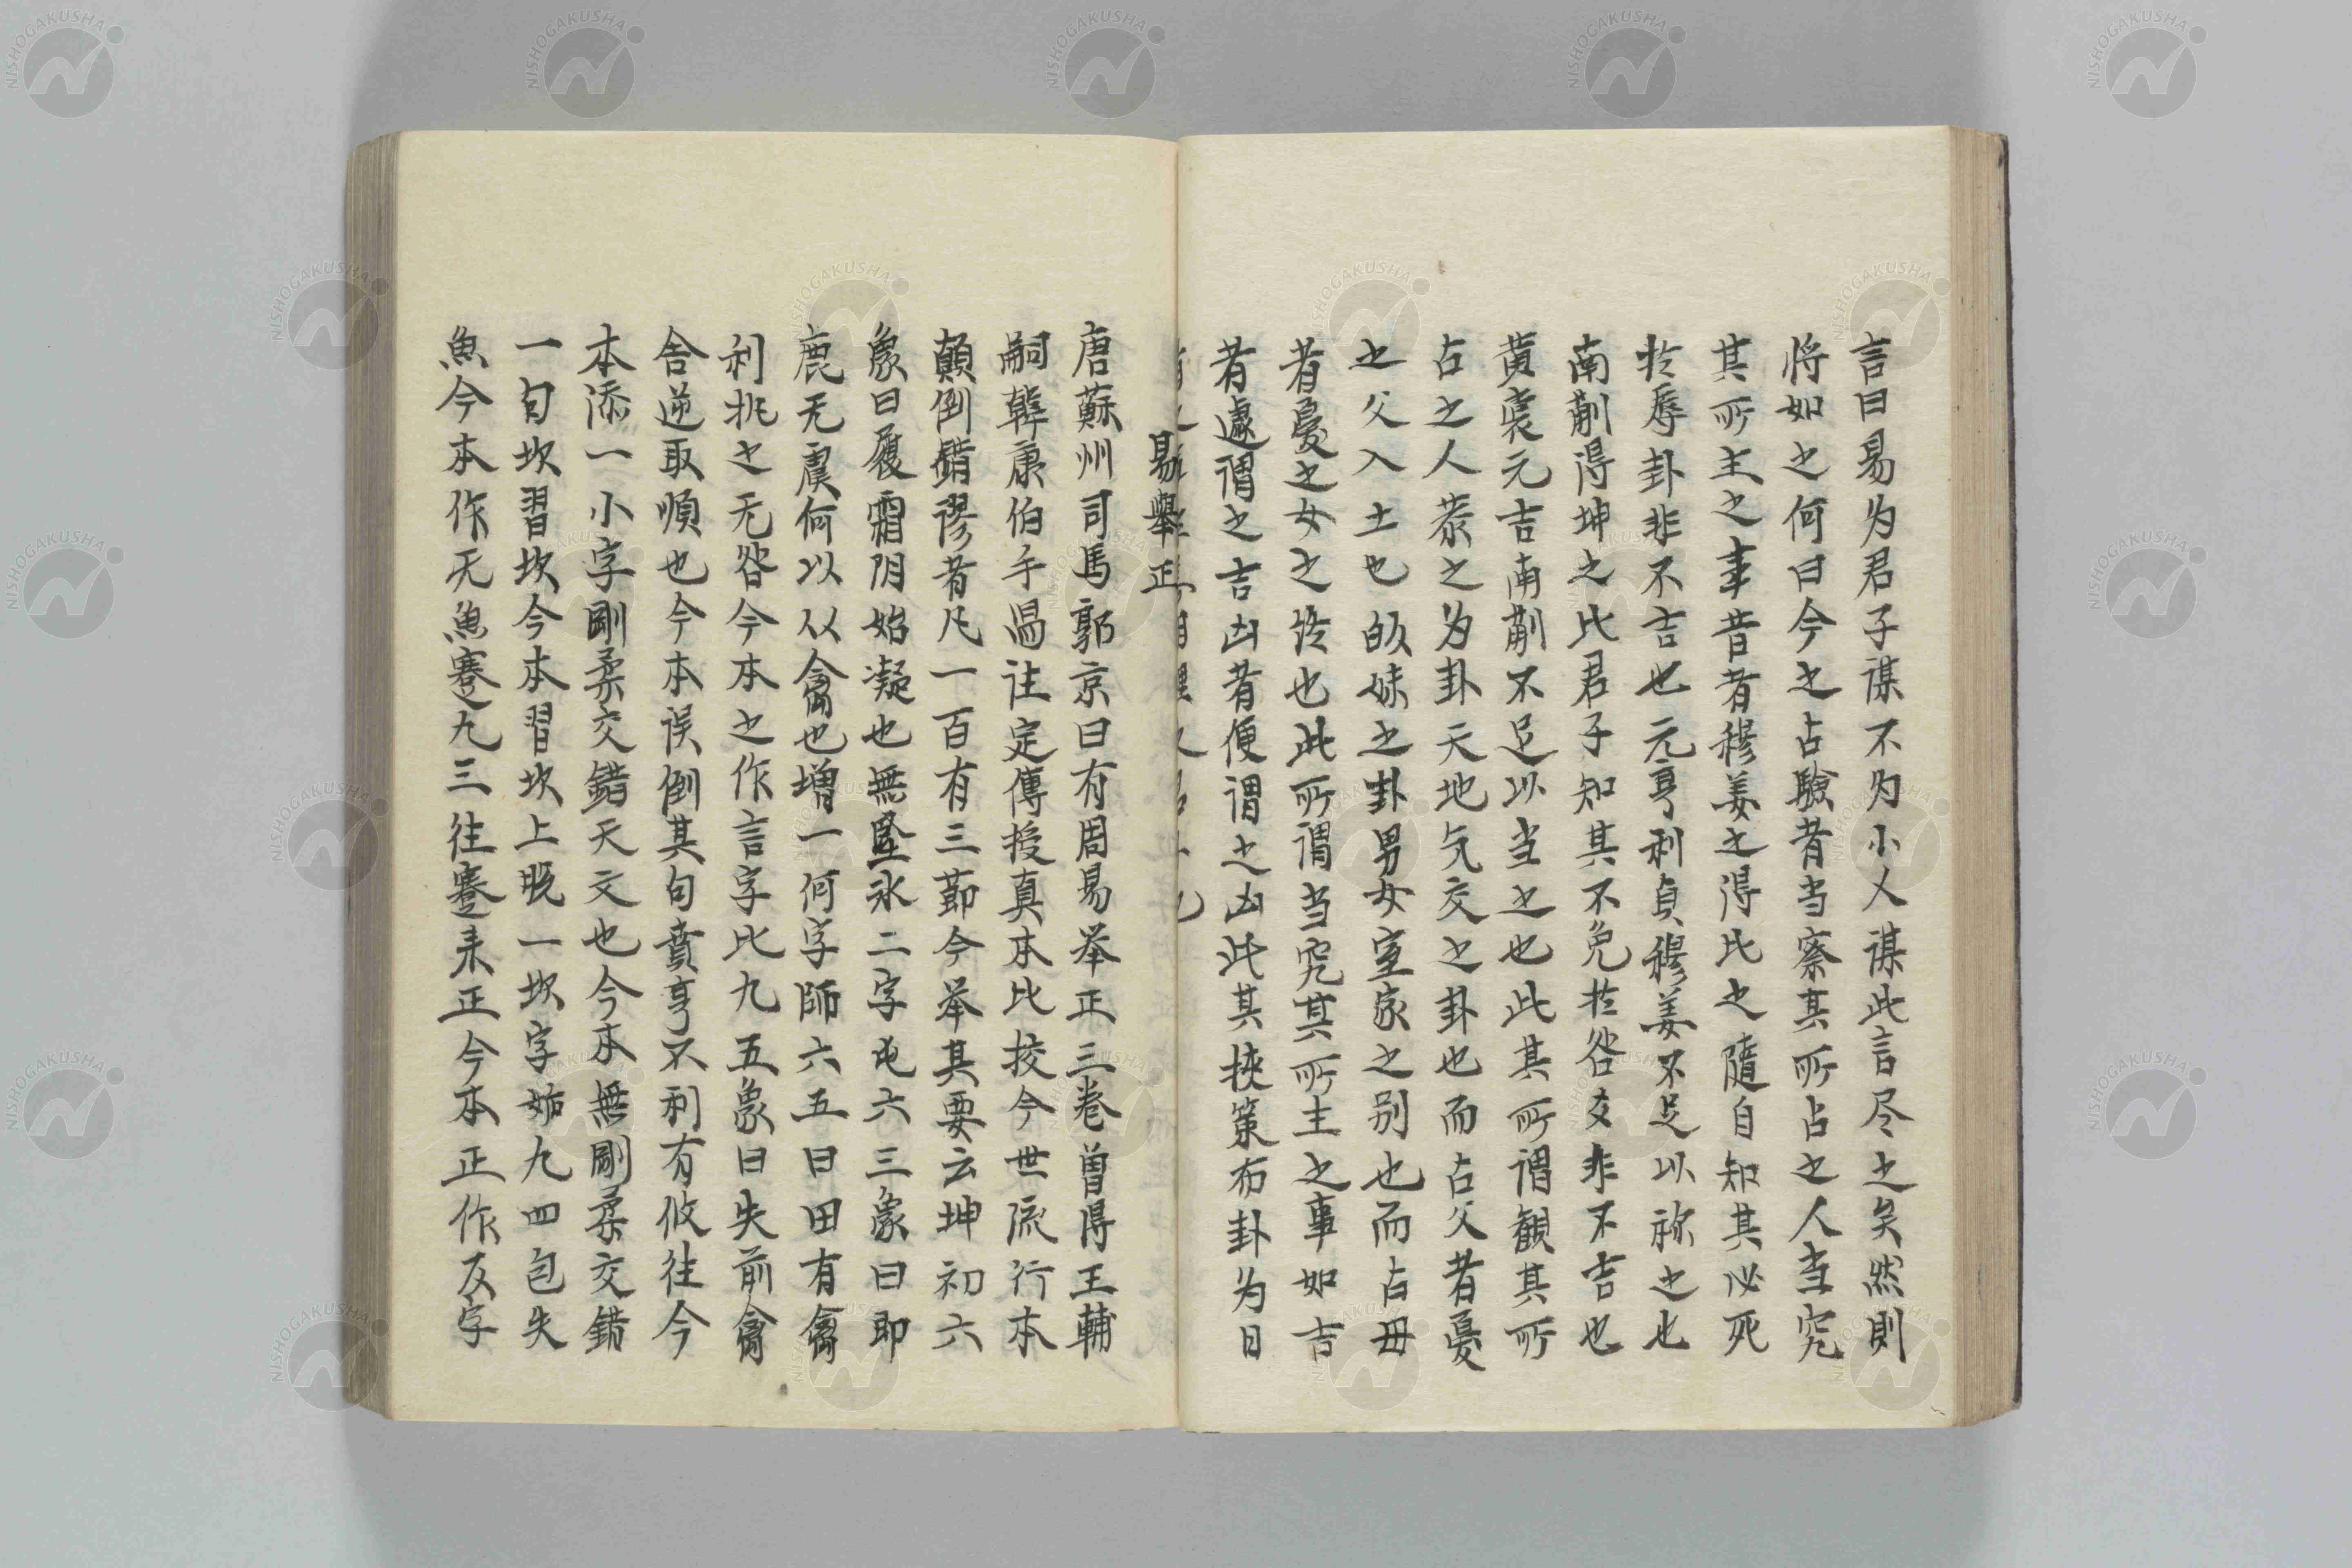 言曰易为君子谋不为小人谋此言尽之矣然則
将如之何曰今之占驗者当察其所占之人当究
其所主之事昔者穆姜之得比之隨自知其必死
扵辱卦非不吉也元亨利貞穆姜不足以祢之也
南蒯得坤之比君子知其不免扵咎爻非不吉也
黄裳元吉南蒯不足以当之也此其所謂観其所
占之人泰之为卦天地气交之卦也而占父者憂
之父入土也皈妹之卦男女室家之别也而占母
者憂之女之终也此所謂当究其所主之事如吉
者遽謂之吉凶者便謂之凶此其挾策布卦为日
易舉正
唐蘇州司馬郭京曰有周易举正三巻曽得王輔
嗣韓康伯手冩注定傳授真本比挍今世流行本
顛倒錯谬者凡一百有三莭今举其要云坤初六
象曰履霜阴始凝也無堅氷二字屯六三象曰即
鹿无虞何以从禽也增一何字師六五曰田有禽
利执之无咎今本之作言字比九五象曰失前禽
舎逆取順也今本误倒其句賁亨不利有攸往今
本添一小字剛柔交錯天文也今本無剛柔交錯
一句坎習坎今本習坎上脱一坎字姤九四包失
魚今本作无魚蹇九三往蹇来正今本正作反字